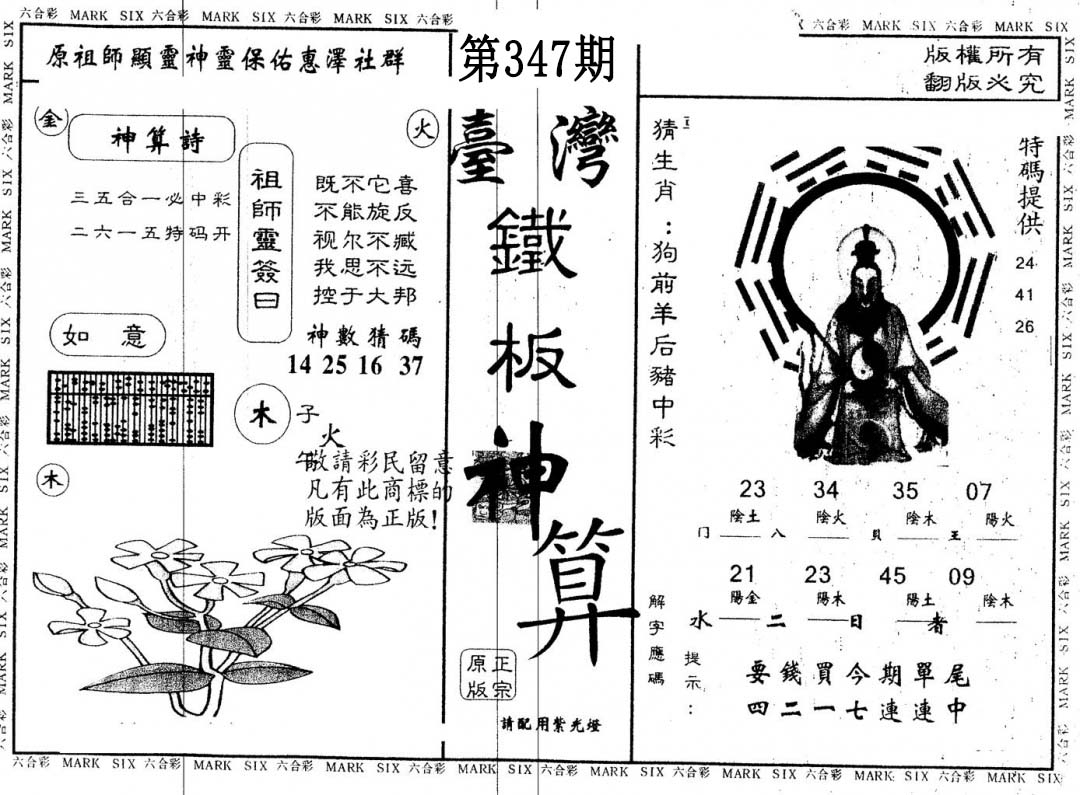 六合彩 MARK SIX 六合彩 MARK SIX 六合彩 MARK SIX 六合彩
六合彩 MARK SIX 六合彩 MARK SIX
原祖師顯靈神靈保佑惠澤社群
第347期
版權所有
翻版必究
金
神算詩
火
三五合一必中彩
二六一五特码开
祖師靈簽曰
既不它喜
不能旋反
视尔不臧
我思不远
控于大邦
神數猜碼
14 25 16 37
如意
木
子
火
午
敬請彩民留意
凡有此商標的
版面為正版!
木
臺灣
鐵板神算
正宗
原版
請配用紫光燈
猜生肖:狗前羊后豬中彩
特碼提供
24
41
26
23 34 35 07
陰土 陰火 陰木 陽火
门 八 貝 王
21 23 45 09
陽金 陽木 陽土 陰木
水 二 日 者
解字應碼
提示:
要錢買今期單尾
四二一七連連中
六合彩 MARK SIX 六合彩 MARK SIX 六合彩 MARK SIX 六合彩 MARK SIX 六合彩 MARK SIX 六合彩 MARK SIX 六合彩 MARK SIX 六合彩 MARK SIX